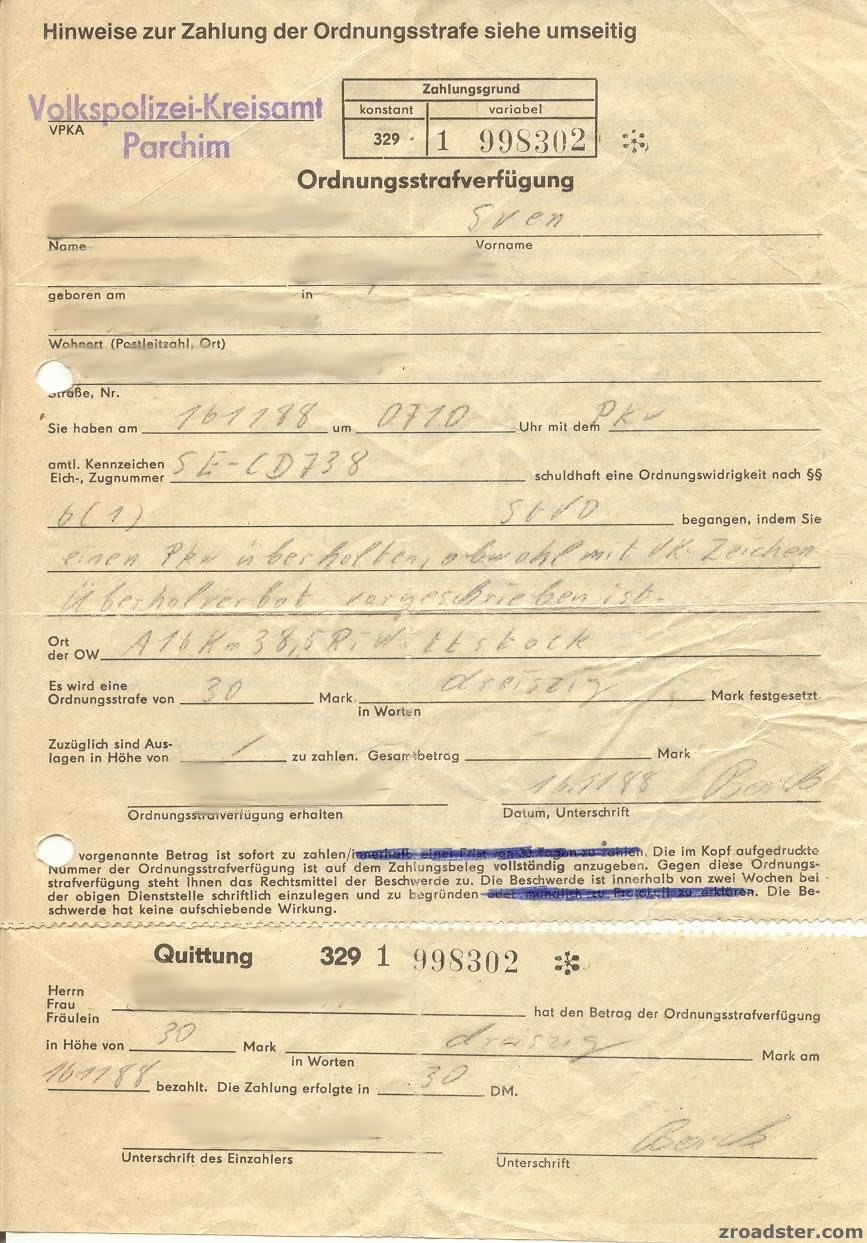 Hinweise zur Zahlung der Ordnungsstrafe siehe umseitig
Volkspolizei-Kreisamt
VPKA
Parchim
Zahlungsgrund
konstant variabel
329 1 998302
Ordnungsstrafverfügung
Sven
Name Vorname
geboren am in
Wohnort (Postleitzahl, Ort)
Straße, Nr.
Sie haben am 161188 um 0710 Uhr mit dem Pkw
amtl. Kennzeichen
Eich-, Zugnummer SE-CD738 schuldhaft eine Ordnungswidrigkeit nach §§
6(1) StVO begangen, indem Sie
einen Pkw überholten, obwohl mit VK-Zeichen
Überholverbot vorgeschrieben ist.
Ort
der OW A16 Km 38,5 Ri Wittstock
Es wird eine
Ordnungsstrafe von 30 Mark dreiszig Mark festgesetzt.
in Worten
Zuzüglich sind Aus-
lagen in Höhe von / zu zahlen. Gesamtbetrag Mark
161188
Ordnungsstrafverfügung erhalten Datum, Unterschrift
vorgenannte Betrag ist sofort zu zahlen/innerhalb einer Frist von 30 Tagen zu zahlen. Die im Kopf aufgedruckte
Nummer der Ordnungsstrafverfügung ist auf dem Zahlungsbeleg vollständig anzugeben. Gegen diese Ordnungs-
strafverfügung steht Ihnen das Rechtsmittel der Beschwerde zu. Die Beschwerde ist innerhalb von zwei Wochen bei
der obigen Dienststelle schriftlich einzulegen und zu begründen oder mündlich zu Protokoll zu erklären. Die Be-
schwerde hat keine aufschiebende Wirkung.
Quittung 329 1 998302
Herrn
Frau
Fräulein hat den Betrag der Ordnungsstrafverfügung
in Höhe von 30 Mark dreiszig Mark am
in Worten
161188 bezahlt. Die Zahlung erfolgte in 30 DM.
Unterschrift des Einzahlers Unterschrift
zroadster.com